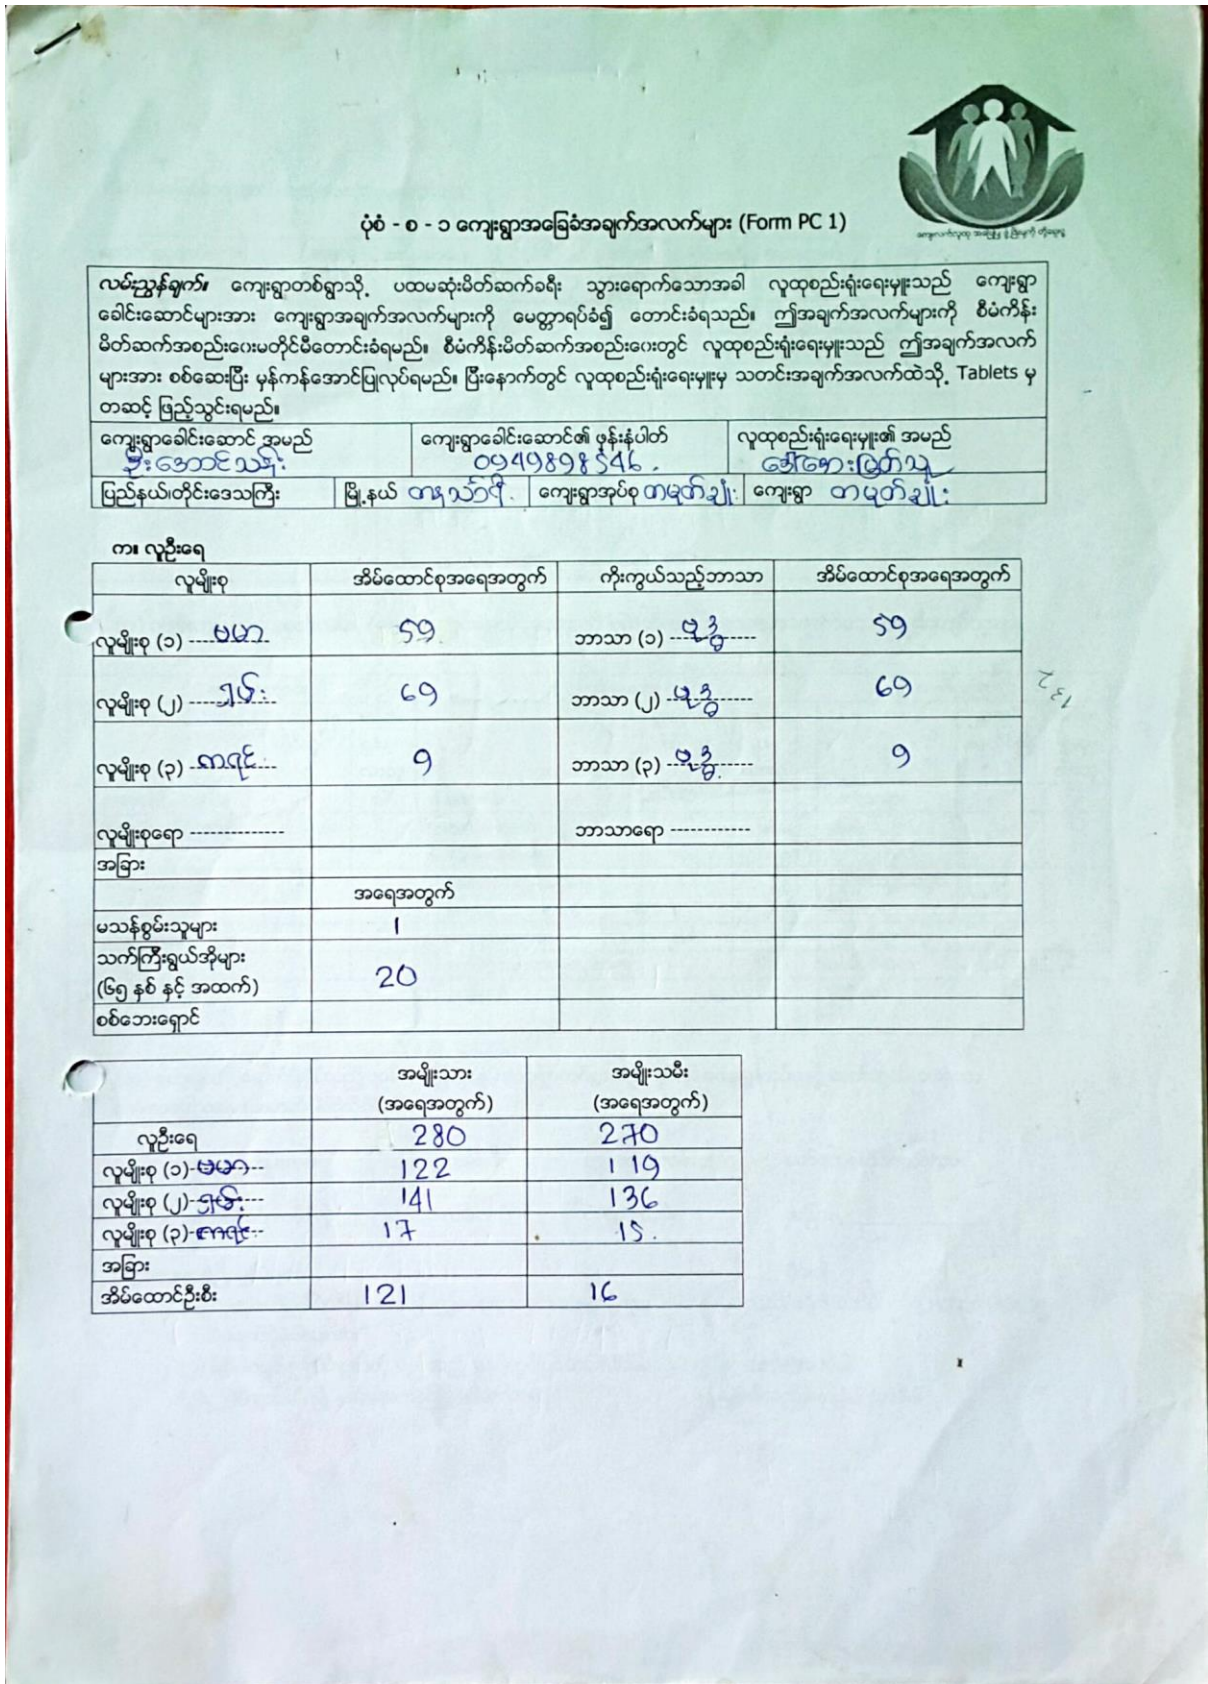 ကျေးလက်လူထု အခြေပြု ဖွံ့ဖြိုးမှုကို တို့ရှေ့ရှု
ပုံစံ - စ - ၁ ကျေးရွာအခြေခံအချက်အလက်များ (Form PC 1)
လမ်းညွှန်ချက်။ ကျေးရွာတစ်ရွာသို့ ပထမဆုံးမိတ်ဆက်ခရီး သွားရောက်သောအခါ လူထုစည်းရုံးရေးမှူးသည် ကျေးရွာ
ခေါင်းဆောင်များအား ကျေးရွာအချက်အလက်များကို မေတ္တာရပ်ခံ၍ တောင်းခံရသည်။ ဤအချက်အလက်များကို စီမံကိန်း
မိတ်ဆက်အစည်းဝေးမတိုင်မီတောင်းခံရမည်။ စီမံကိန်းမိတ်ဆက်အစည်းဝေးတွင် လူထုစည်းရုံးရေးမှူးသည် ဤအချက်အလက်
များအား စစ်ဆေးပြီး မှန်ကန်အောင်ပြုလုပ်ရမည်။ ပြီးနောက်တွင် လူထုစည်းရုံးရေးမှူးမှ သတင်းအချက်အလက်ထဲသို့ Tablets မှ
တဆင့် ဖြည့်သွင်းရမည်။
ကျေးရွာခေါင်းဆောင် အမည် ကျေးရွာခေါင်းဆောင်၏ ဖုန်းနံပါတ် လူထုစည်းရုံးရေးမှူး၏ အမည်
ဦးအောင်သန်း 0949898546 ဒေါ်အေးမြတ်သူ
ပြည်နယ်/တိုင်းဒေသကြီး မြို့နယ် တနင်္သာရီ ကျေးရွာအုပ်စု တမုတ်ချုံး ကျေးရွာ တမုတ်ချုံး
က။ လူဦးရေ
လူမျိုးစု အိမ်ထောင်စုအရေအတွက် ကိုးကွယ်သည့်ဘာသာ အိမ်ထောင်စုအရေအတွက်
လူမျိုးစု (၁) ဗမာ 59 ဘာသာ (၁) ဗုဒ္ဓ 59
လူမျိုးစု (၂) ရှမ်း 69 ဘာသာ (၂) ဗုဒ္ဓ 69
132
လူမျိုးစု (၃) ကရင် 9 ဘာသာ (၃) ဗုဒ္ဓ 9
လူမျိုးစုရော -------------- ဘာသာရော ------------
အခြား
အရေအတွက်
မသန်စွမ်းသူများ 1
သက်ကြီးရွယ်အိုများ
(၆၅ နှစ် နှင့် အထက်) 20
စစ်ဘေးရှောင်
အမျိုးသား အမျိုးသမီး
(အရေအတွက်) (အရေအတွက်)
လူဦးရေ 280 270
လူမျိုးစု (၁)-ဗမာ 122 119
လူမျိုးစု (၂)-ရှမ်း 141 136
လူမျိုးစု (၃)-ကရင် 17 15
အခြား
အိမ်ထောင်ဦးစီး 121 16